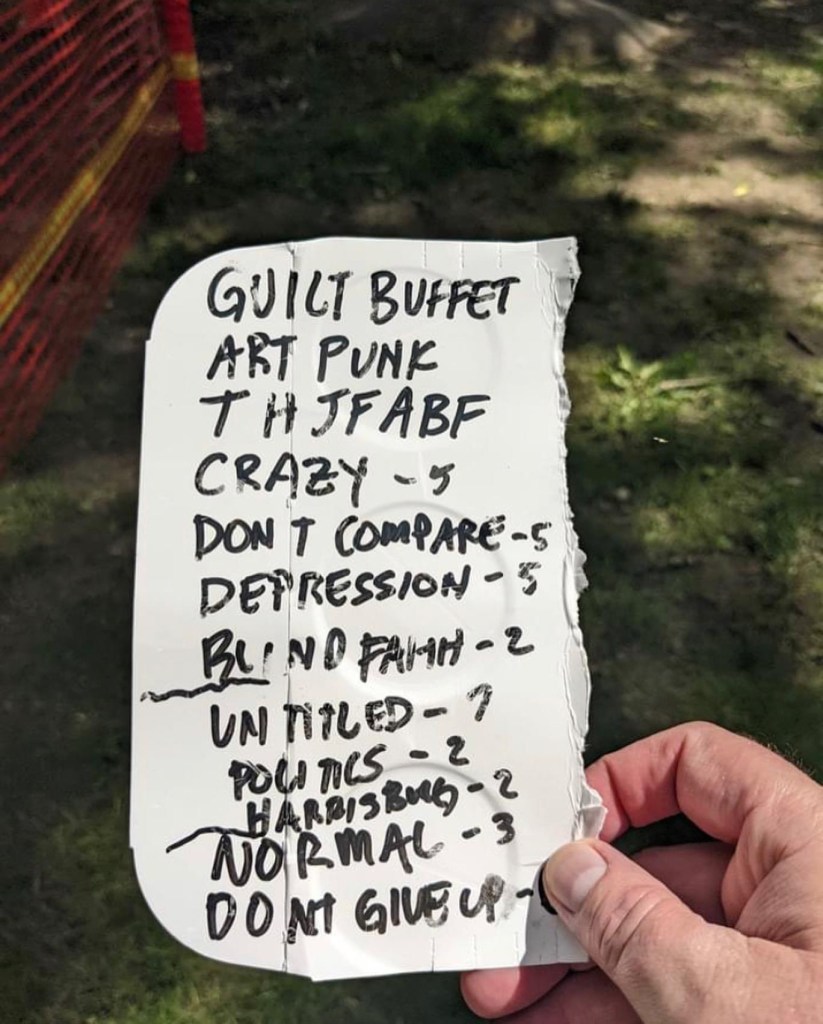 GUILT BUFFET
ART PUNK
THJFABF
CRAZY - 5
DON'T COMPARE - 5
DEPRESSION - 5
BLIND FAITH - 2
UNTITLED - 7
POLITICS - 2
HARRISBURG - 2
NORMAL - 3
DONT GIVE UP -